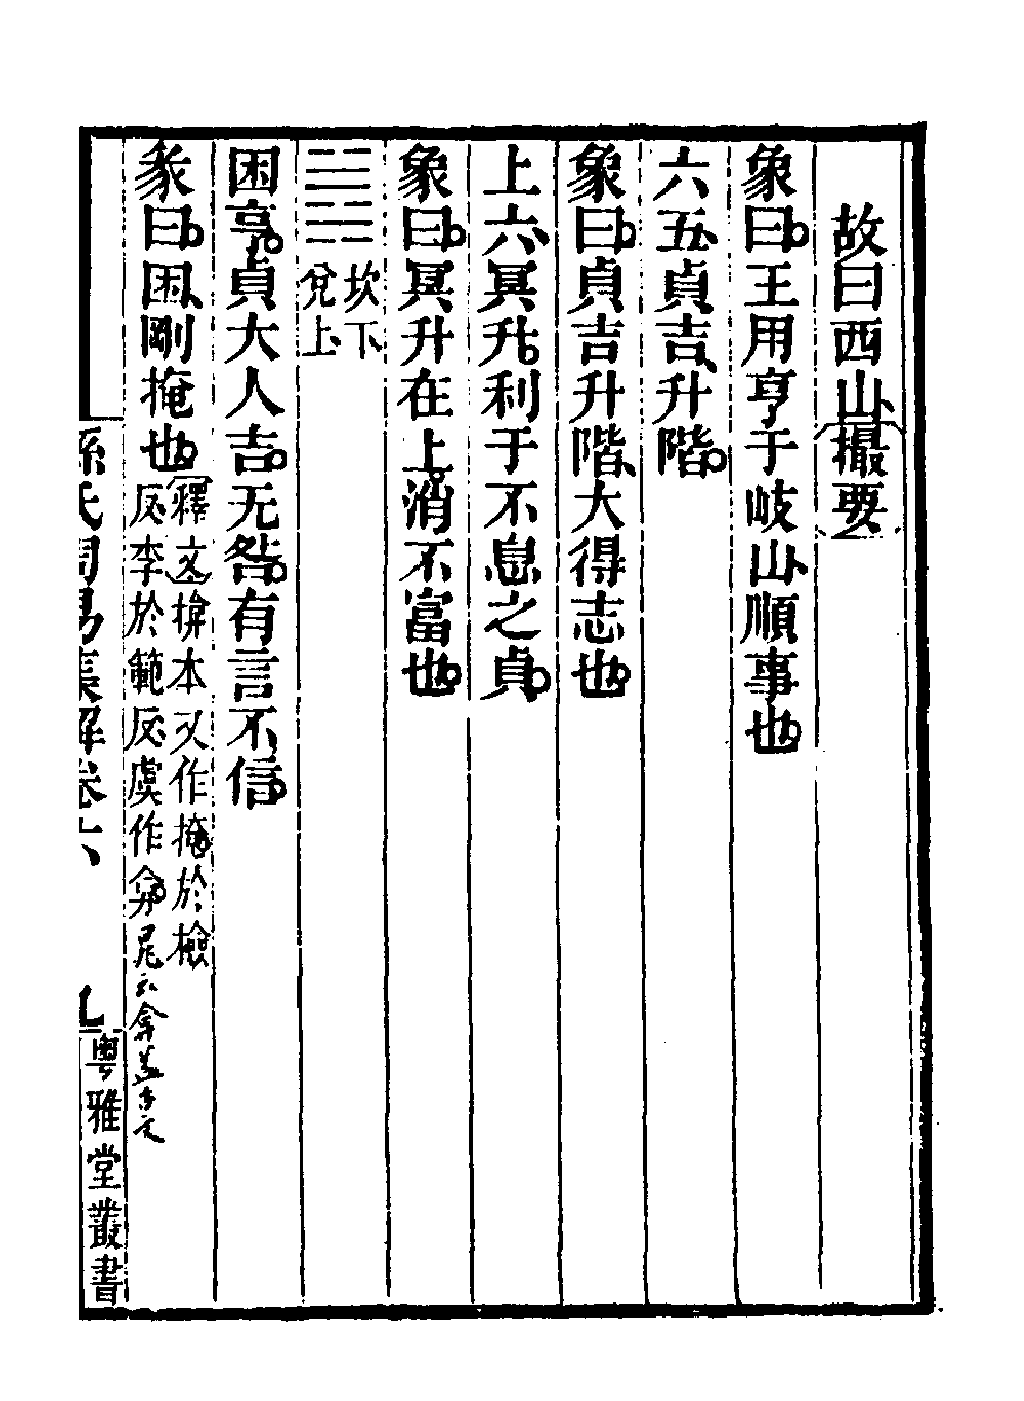 故曰西山撮要
象曰王用亨于岐山順事也
六五貞吉升階
象曰貞吉升階大得志也
上六冥升利于不息之貞
象曰冥升在上消不富也
坎下
兌上
困亨貞大人吉无咎有言不信
彖曰困剛掩也
釋文揜本又作掩於檢
反李於範反虞作弇
孫氏周易集解卷六
九
粵雅堂叢書